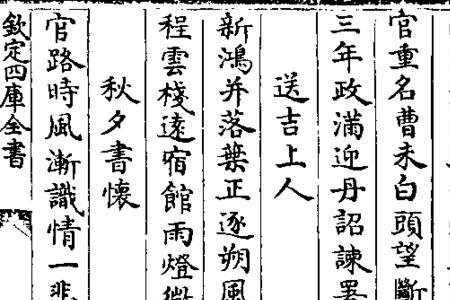 官重名曹未白頭望斷
三年政滿迎丹詔諫
送吉上人
新鴻并落葉正逐朔風
程雲棧遠宿館雨燈微
秋夕書懷
官路時風漸識情一悲
欽定四庫全書